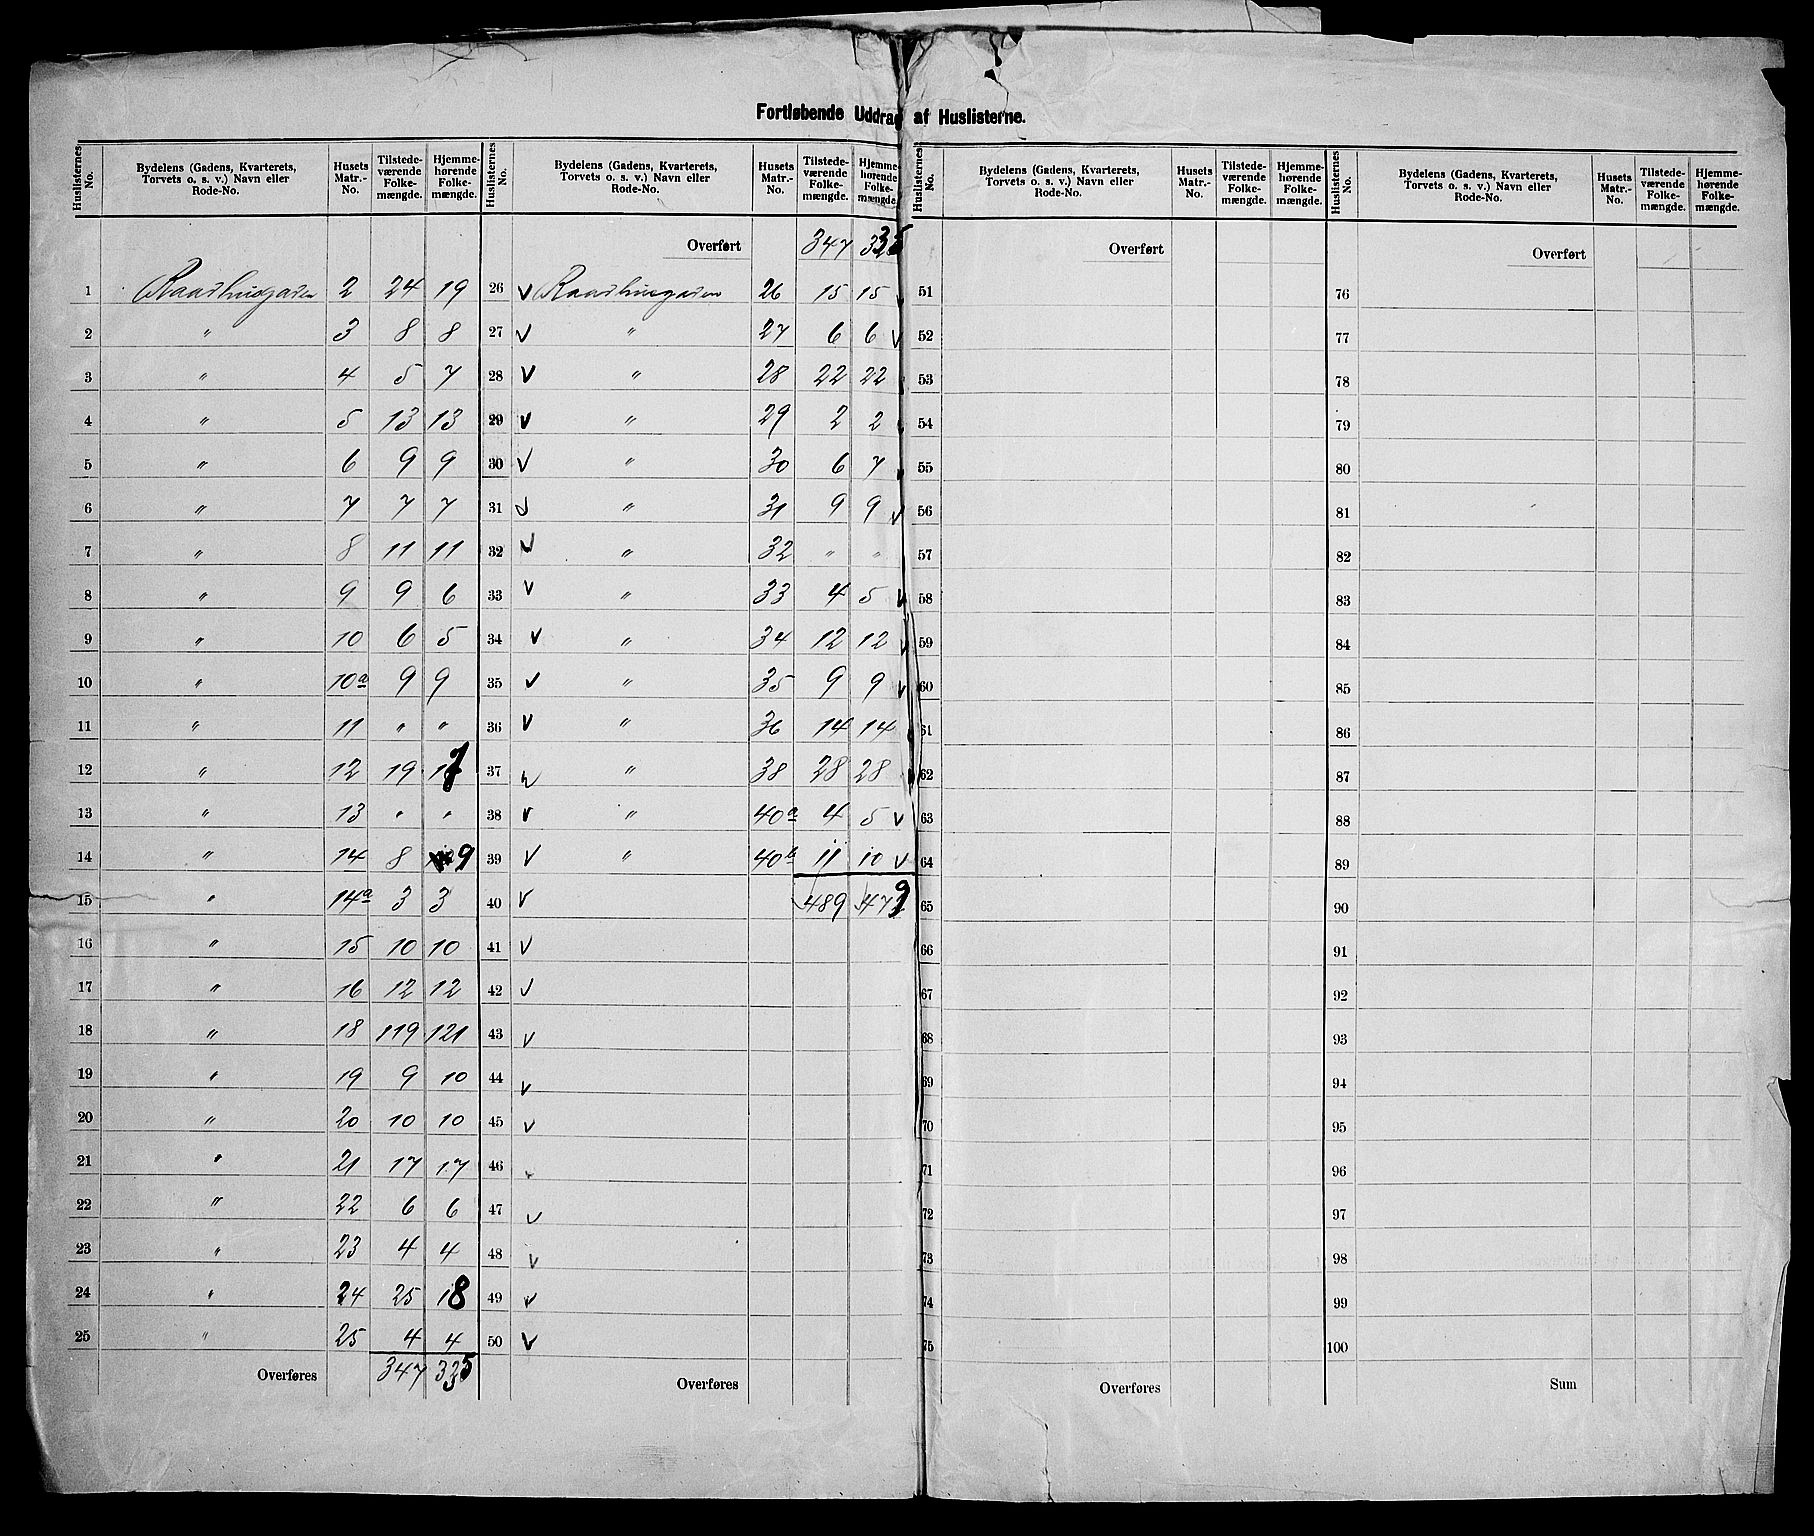 Fortløbende Uddrag af Huslisterne.
Huslisternes No. | Bydelens (Gadens, Kvarterets, Torvets o. s. v.) Navn eller Rode-No. | Husets Matr.-No. | Tilstedeværende Folkemængde. | Hjemmehørende Folkemængde.
1 Raadhusgaden 2 24 19
2 " 3 8 8
3 " 4 5 7
4 " 5 13 13
5 " 6 9 9
6 " 7 7 7
7 " 8 11 11
8 " 9 9 6
9 " 10 6 5
10 " 10a 9 9
11 " 11 " "
12 " 12 19 17
13 " 13 " "
14 " 14 8 9
15 " 14a 3 3
16 " 15 10 10
17 " 16 12 12
18 " 18 119 121
19 " 19 9 10
20 " 20 10 10
21 " 21 17 17
22 " 22 6 6
23 " 23 4 4
24 " 24 25 18
25 " 25 4 4
Overføres 347 335
Huslisternes No. | Bydelens (Gadens, Kvarterets, Torvets o. s. v.) Navn eller Rode-No. | Husets Matr.-No. | Tilstedeværende Folkemængde. | Hjemmehørende Folkemængde.
Overført 347 335
26 Raadhusgaden 26 15 15
27 " 27 6 6
28 " 28 22 22
29 " 29 2 2
30 " 30 6 7
31 " 31 9 9
32 " 32 " "
33 " 33 4 5
34 " 34 12 12
35 " 35 9 9
36 " 36 14 14
37 " 38 28 28
38 " 40a 4 5
39 " 40b 11 10
40 489 479
41
42
43
44
45
46
47
48
49
50
Overføres
Huslisternes No. | Bydelens (Gadens, Kvarterets, Torvets o. s. v.) Navn eller Rode-No. | Husets Matr.-No. | Tilstedeværende Folkemængde. | Hjemmehørende Folkemængde.
Overført
51
52
53
54
55
56
57
58
59
60
61
62
63
64
65
66
67
68
69
70
71
72
73
74
75
Overføres
Huslisternes No. | Bydelens (Gadens, Kvarterets, Torvets o. s. v.) Navn eller Rode-No. | Husets Matr.-No. | Tilstedeværende Folkemængde. | Hjemmehørende Folkemængde.
Overført
76
77
78
79
80
81
82
83
84
85
86
87
88
89
90
91
92
93
94
95
96
97
98
99
100
Sum